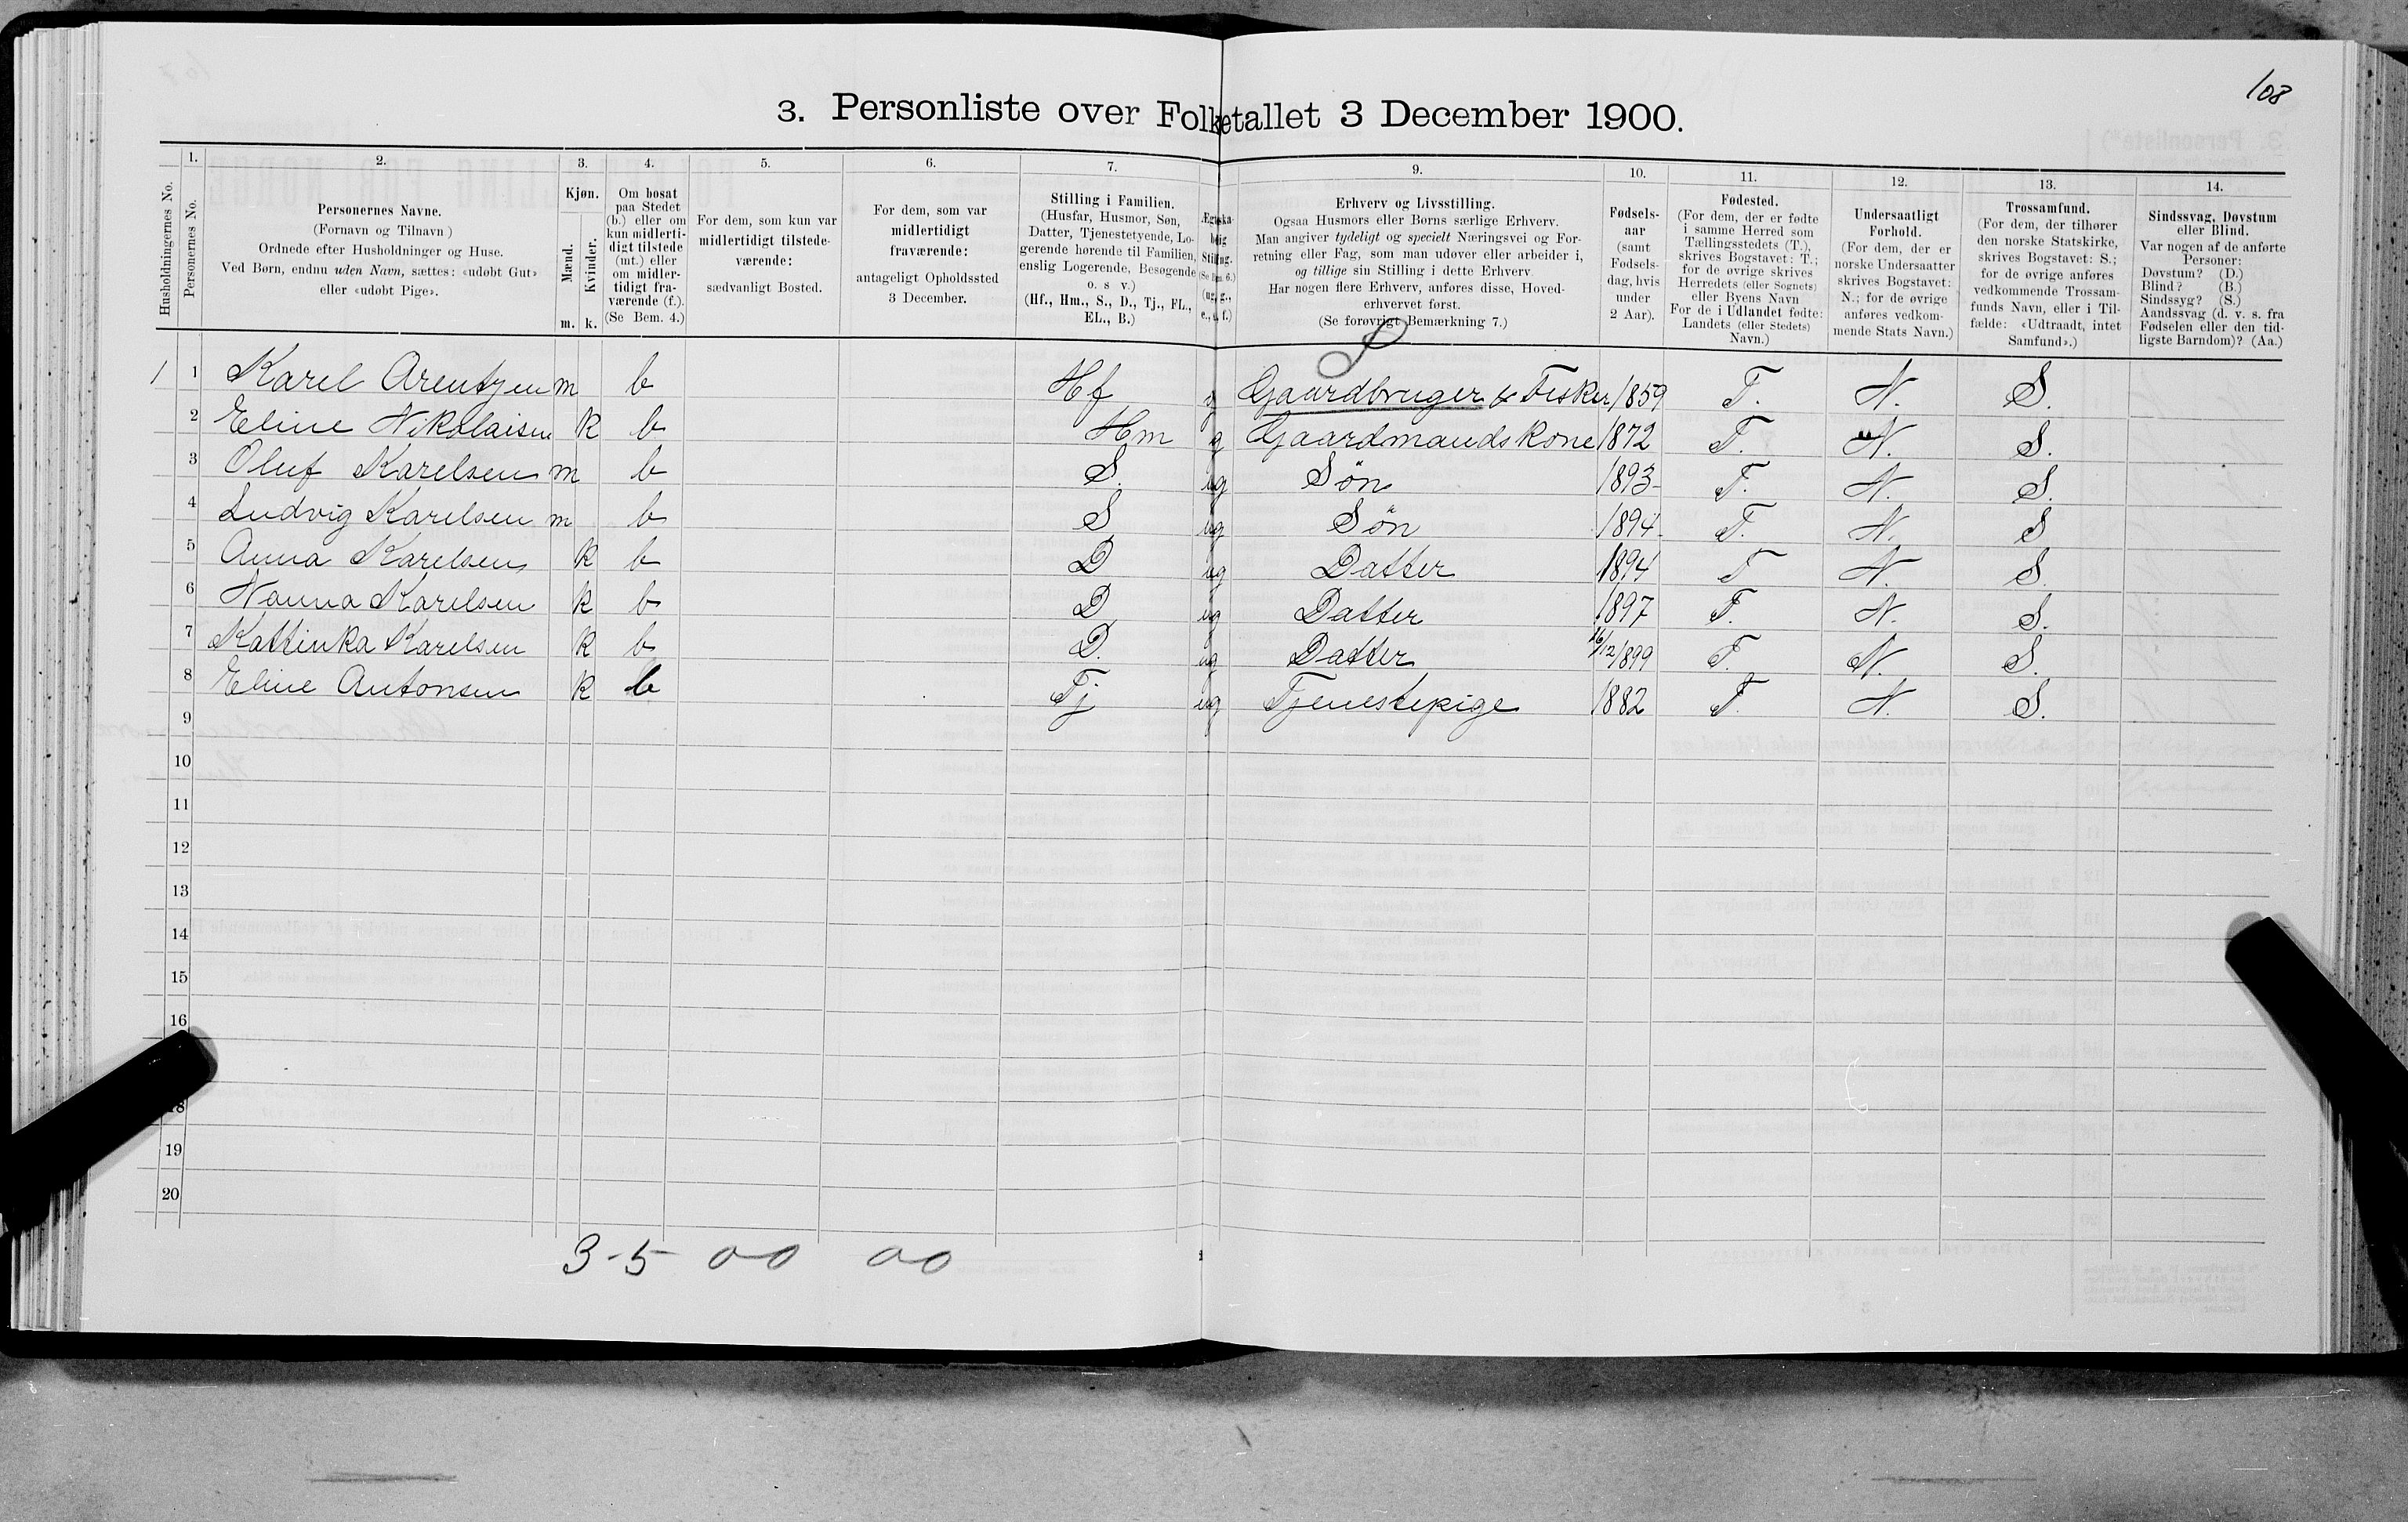 108
3. Personliste over Folketallet 3 December 1900.
1. 2. 3. 4. 5. 6. 7. 9. 10. 11. 12. 13. 14.
Husholdningernes No.
Personernes No.
Personernes Navne.
(Fornavn og Tilnavn)
Ordnede efter Husholdninger og Huse.
Ved Børn, endnu uden Navn, sættes: «udøbt Gut»
eller «udøbt Pige».
Kjøn.
Mænd.
Kvinder.
m. k.
Om bosat
paa Stedet
(b.) eller om
kun midlerti-
digt tilstede
(mt.) eller
om midler-
tidigt fra-
værende (f.).
(Se Bem. 4.)
For dem, som kun var
midlertidigt tilstede-
værende:
sædvanligt Bosted.
For dem, som var
midlertidigt
fraværende:
antageligt Opholdssted
3 December.
Stilling i Familien.
(Husfar, Husmor, Søn,
Datter, Tjenestetyende, Lo-
gerende hørende til Familien,
enslig Logerende, Besøgende
o. s v.)
(Hf., Hm., S., D., Tj., FL.,
EL., B.)
Stilling.
Erhverv og Livsstilling.
Ogsaa Husmors eller Børns særlige Erhverv.
Man angiver tydeligt og specielt Næringsvei og For-
retning eller Fag, som man udøver eller arbeider i,
og tillige sin Stilling i dette Erhverv.
Har nogen flere Erhverv, anføres disse, Hoved-
erhvervet først.
(Se forøvrigt Bemærkning 7.)
Fødsels-
aar
(samt
Fødsels-
dag, hvis
under
2 Aar).
Fødested.
(For dem, der er fødte
i samme Herred som
Tællingsstedets (T.),
skrives Bogstavet: T.;
for de øvrige skrives
Herredets (eller Sognets)
eller Byens Navn
For de i Udlandet fødte:
Landets (eller Stedets)
Navn.)
Undersaatligt
Forhold.
(For dem, der er
norske Undersaatter
skrives Bogstavet:
N.; for de øvrige
anføres vedkom-
mende Stats Navn.)
Trossamfund.
(For dem, der tilhører
den norske Statskirke,
skrives Bogstavet: S.;
for de øvrige anføres
vedkommende Trossam-
funds Navn, eller i Til-
fælde: «Udtraadt, intet
Samfund».)
Sindssvag, Døvstum
eller Blind.
Var nogen af de anførte
Personer:
Døvstum? (D.)
Blind? (B.)
Sindssyg? (S.)
Aandssvag (d. v. s. fra
Fødselen eller den tid-
ligste Barndom)? (Aa.)
1 1 Karel Arentzen m b Hf g Gaardbruger & Fisker 1859 T. N. S.
2 Eline Nikolaisen k b Hm g Gaardmandskone 1872 T. N. S.
3 Oluf Karelsen m b S. ug Søn 1893 T. N. S.
4 Ludvig Karelsen m b S ug Søn 1894 T. N. S
5 Anna Karelsen k b D ug Datter 1894 T N. S.
6 Nanna Karelsen k b D ug Datter 1897 T. N. S.
7 Kattinka Karelsen k b D. ug Datter 16/12 1899 T. N. S.
8 Eline Antonsen k b Tj ug Tjenestepige 1882 T. N. S.
9
10
11
12
13
14
15
16
18
19
20
3-5 00 00